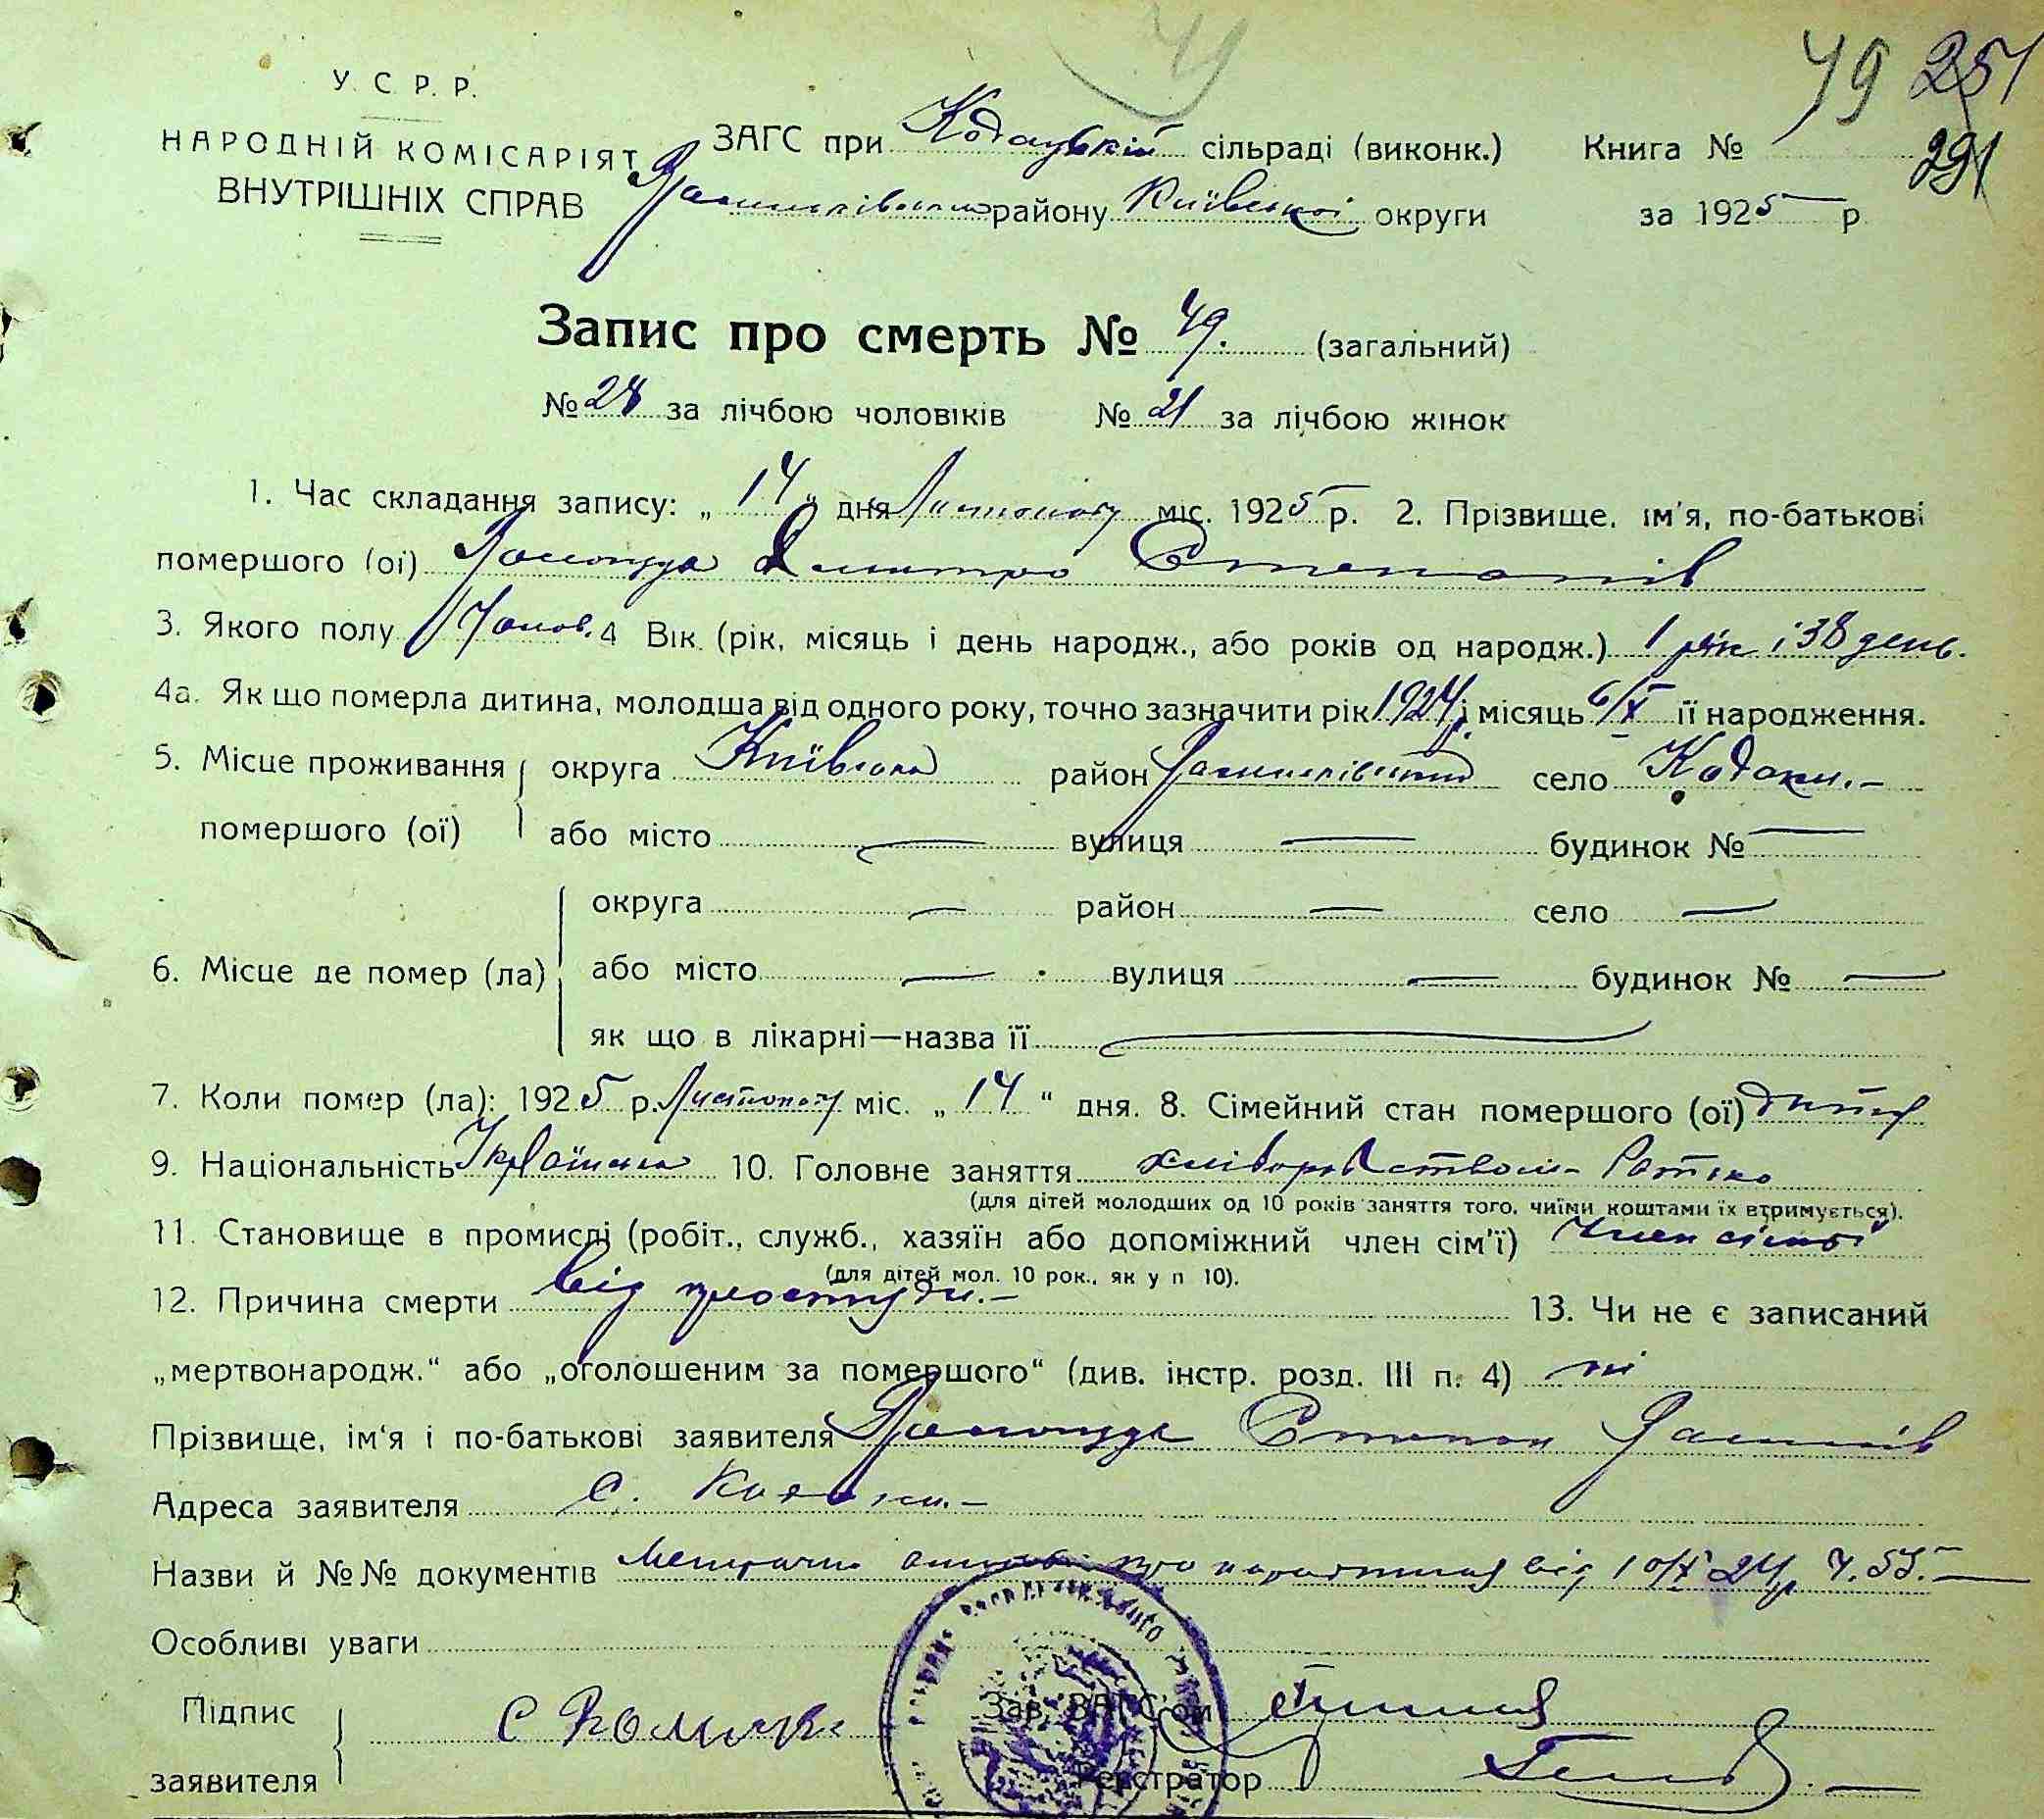 49
49 251
У. С. Р. Р.
НАРОДНІЙ КОМІСАРІЯТ
ВНУТРІШНІХ СПРАВ
ЗАГС при Кодацькій сільраді (виконк.) Книга № 291
Васильківського району Київської округи за 1925 р.
Запис про смерть № 49. (загальний)
№ 28 за лічбою чоловіків № 21 за лічбою жінок
1. Час складання запису: „ 14 " дня Листопаду міс. 1925 р. 2. Прізвище, ім'я, по-батькові
помершого (ої) Дмитро Степанів
3. Якого полу Чолов. 4 Вік (рік, місяць і день народж., або років од народж.) 1 рік і 38 день.
4а. Як що померла дитина, молодша від одного року, точно зазначити рік 1924 і місяць 6/X її народження.
5. Місце проживання помершого (ої) округа Київська район Васильківський село Кодаки.-
або місто — вулиця — будинок № —
6. Місце де помер (ла) округа — район — село —
або місто — вулиця — будинок № —
як що в лікарні—назва її —
7. Коли помер (ла): 1925 р. Листопаду міс. „ 14 " дня. 8. Сімейний стан помершого (ої) дитя
9. Національність 10. Головне заняття хліборобством
(для дітей молодших од 10 років заняття того, чиїми коштами їх втримується).
11. Становище в промислі (робіт., служб., хазяїн або допоміжний член сім'ї) член сімьї
(для дітей мол. 10 рок., як у п 10).
12. Причина смерти від простуди.- 13. Чи не є записаний
„мертвонародж." або „оголошеним за помершого" (див. інстр. розд. III п. 4) ні
Прізвище, ім'я і по-батькові заявителя Степан
Адреса заявителя с. Кодаки.-
Назви й №№ документів про народження від 10/X 24р. Ч. 53.-
Особливі уваги
Підпис заявителя
Зав. ЗАГС'ом
Реєстратор